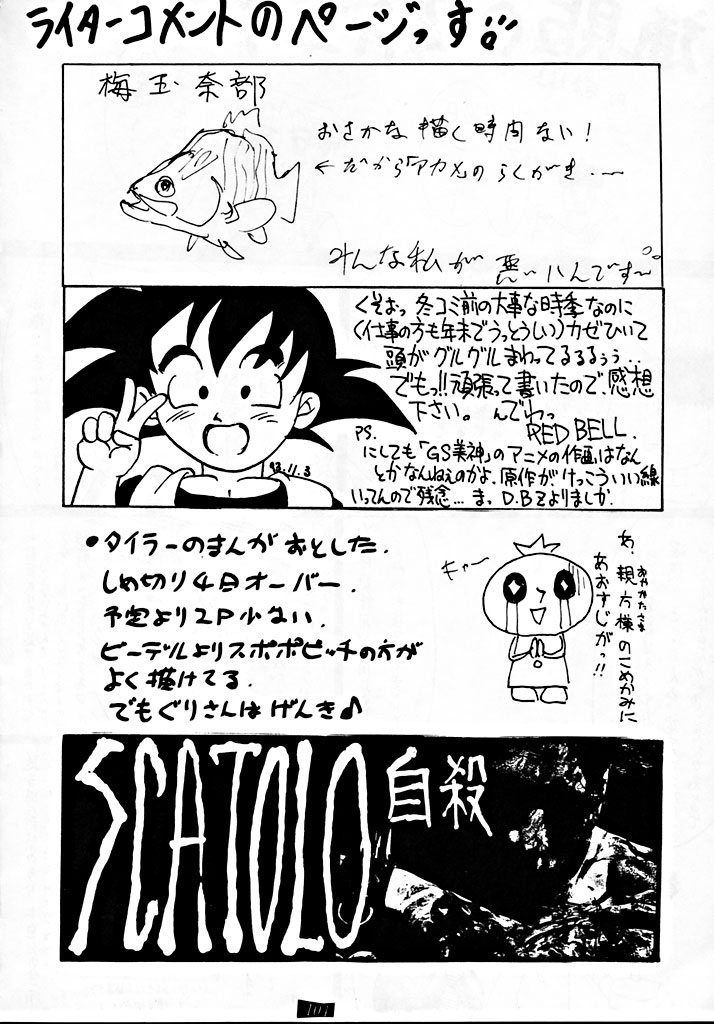 ライターコメントのページっす!!
梅玉奈部
おさかな描く時間ない!
←だから「アカメ」のらくがき・〜
みんな私が悪いんです〜
くそぉっ 冬コミ前の大事な時季なのに
(仕事の方も年末でうっとうしい)カゼひいて
頭がグルグルまわってるるるぅぅ..
でもっ!!頑張って書いたので、感想
下さい。 んでわっ
RED BELL.
PS.
にしても「GS美神」のアニメの作画はなん
とかなんねぇのかよ、原作がけっこういい線
いってんので残念…ま、D.B.Zよりましか.
93.11.3
•タイラーのまんがおとした.
しめ切り4日オーバー.
予定より2P少ない.
ビーデルよりスポポビッチの方が
よく描けてる.
でもぐりさんはげんき♪
キャー
あ、親方様のこめかみに
おやかたさま
あおすじがっ!!
SCATOLO
自殺
101